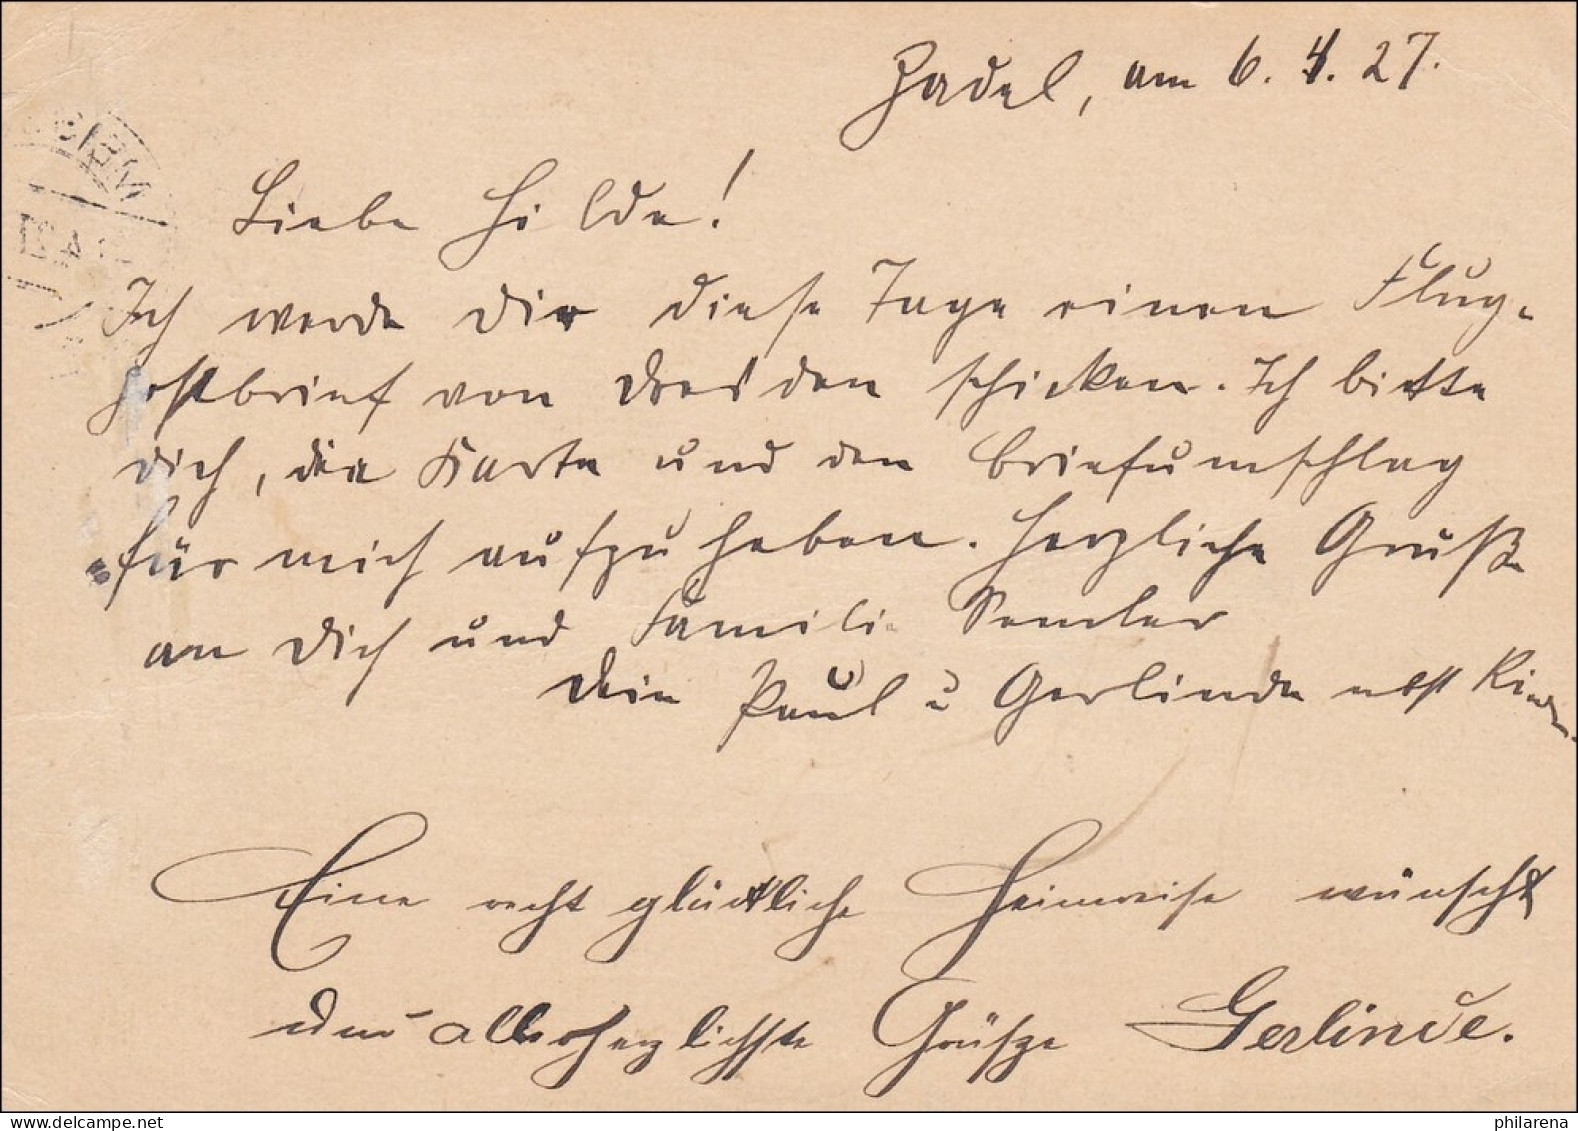 Zadel, am 6. 4. 27.
Liebe Hilde!
Ich werde Dir diese Tage einen Flug-
postbrief von Dresden schicken. Ich bitte
dich, die Karte und den Briefumschlag
für mich aufzuheben. Herzliche Grüße
an Dich und Familie Semler
Dein Paul u Gerlinde nebst Kinder.
Eine recht glückliche Heimreise wünscht
und allerherzlichste Grüsze Gerlinde.
philarena